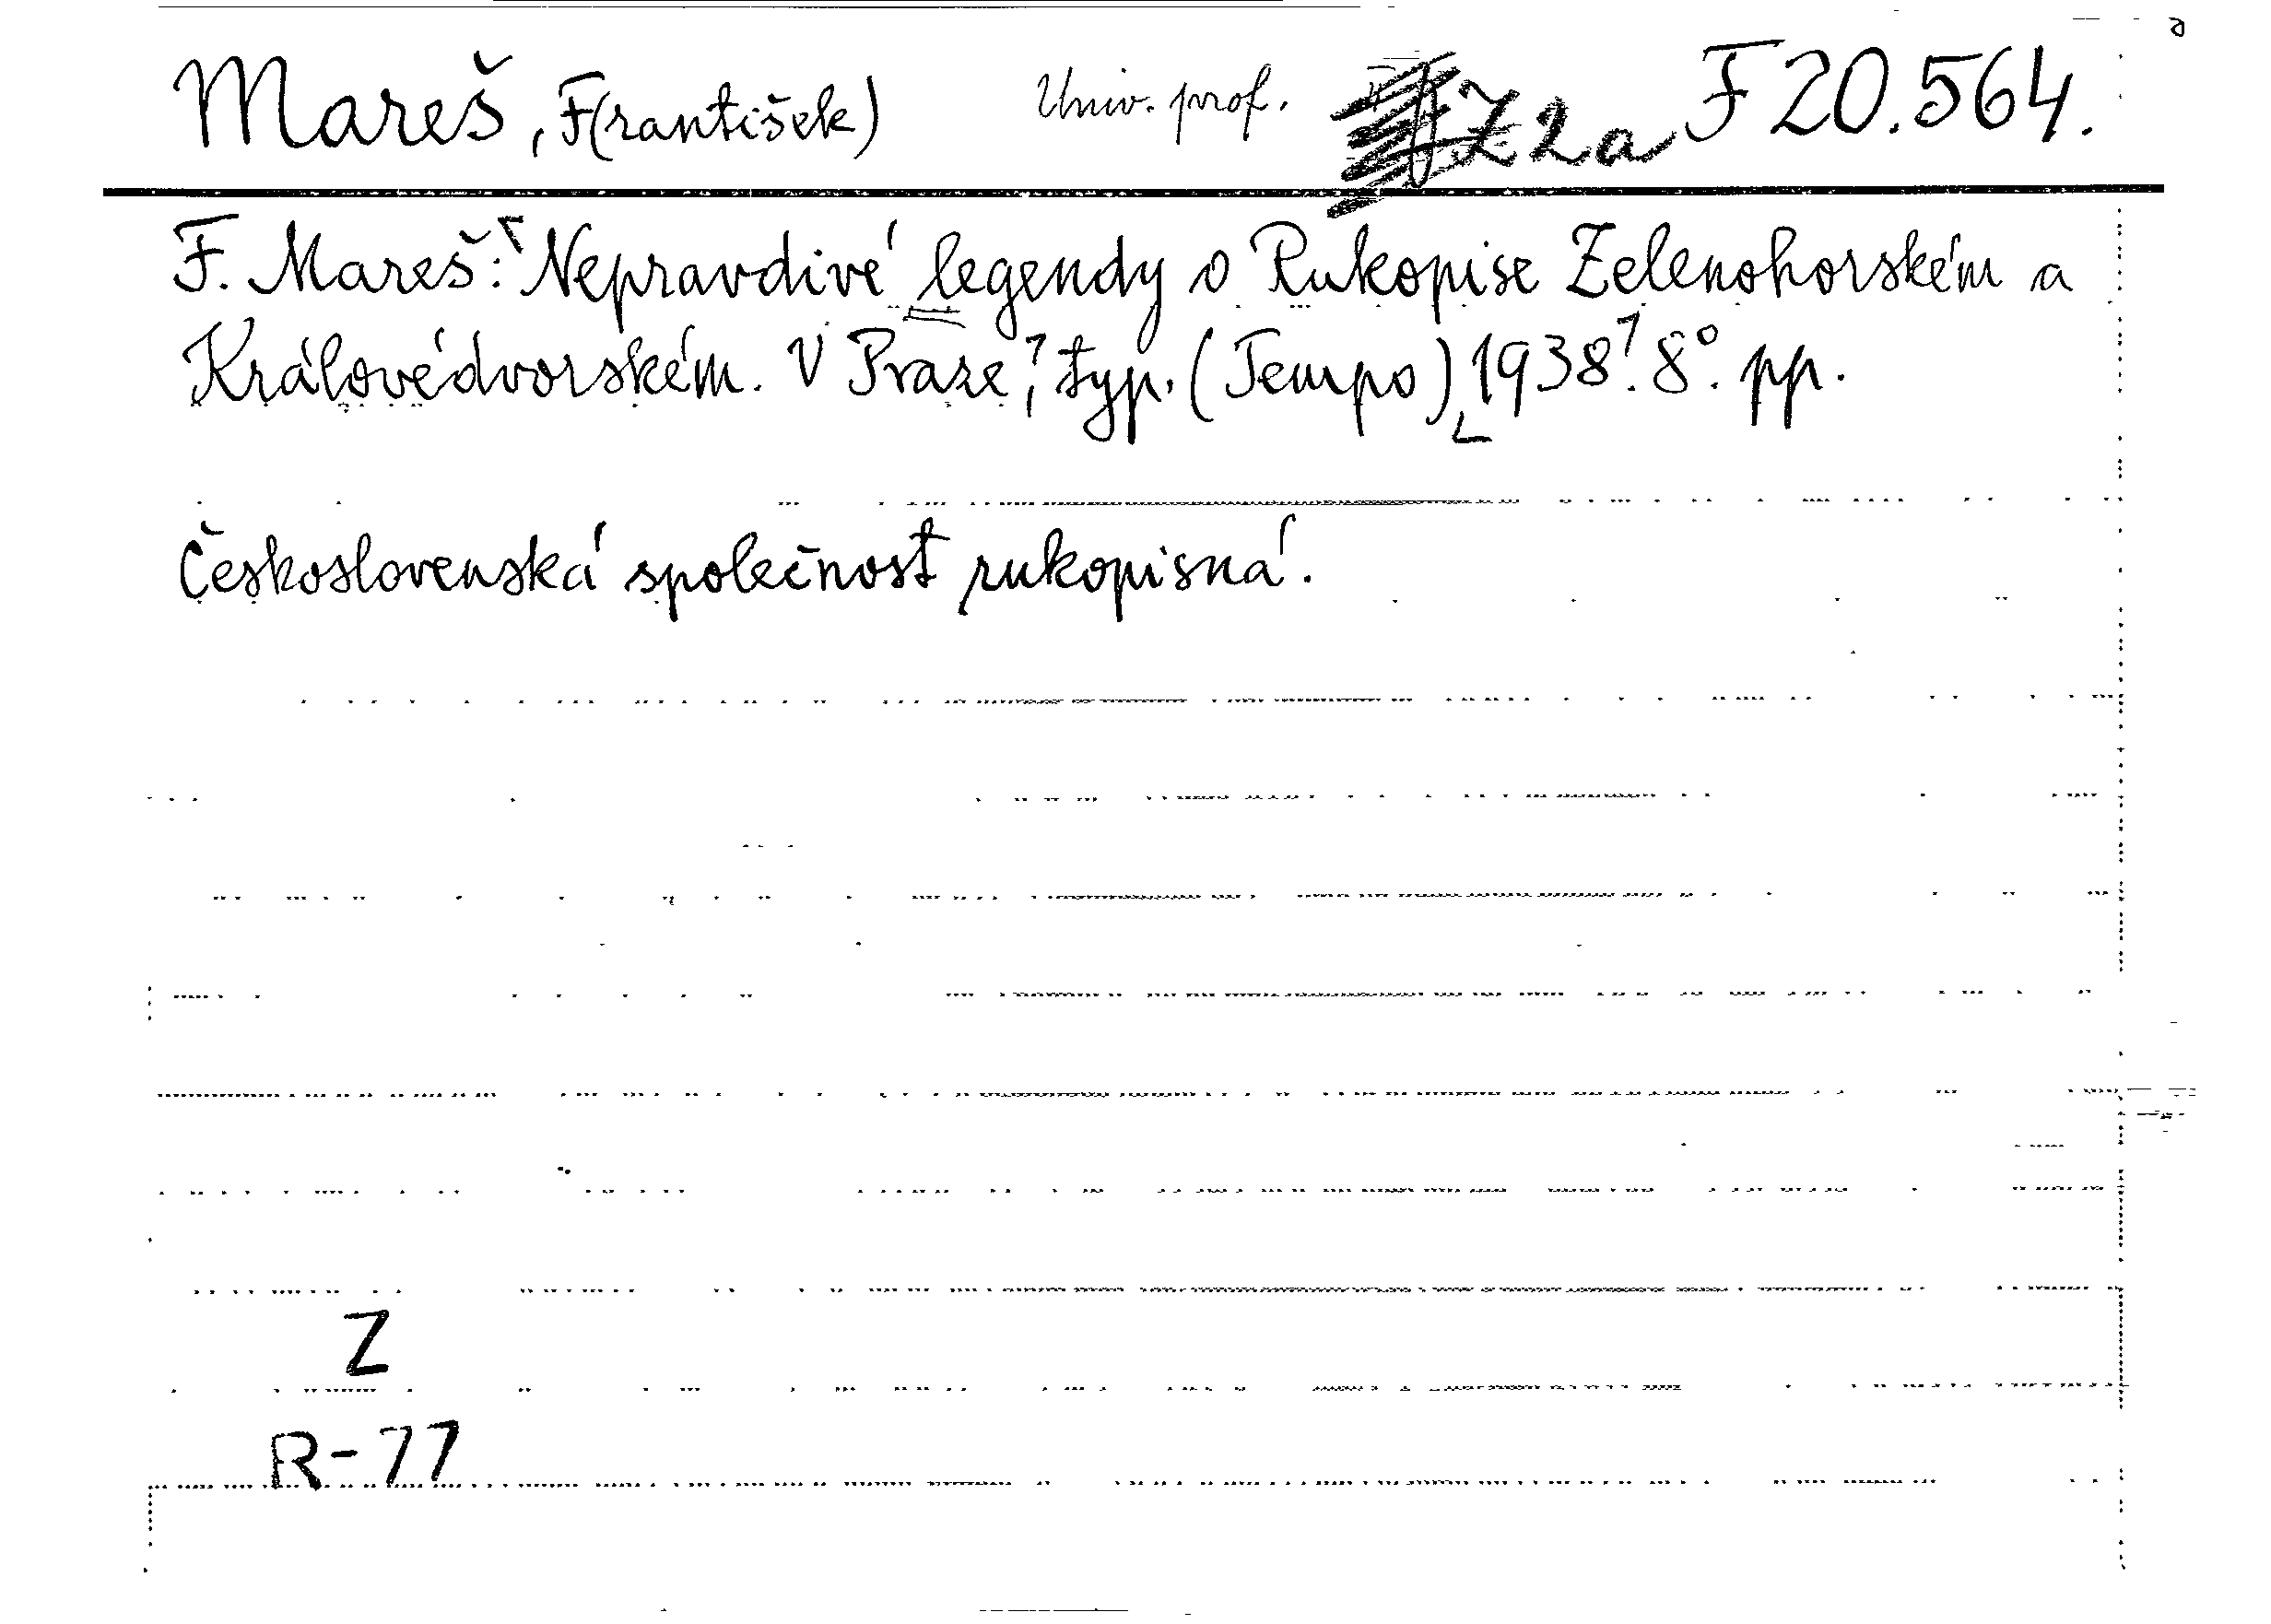 Mareš, F(rantišek) Univ. prof. Z2a F 20.564.
F. Mareš: Nepravdivé legendy o Rukopise Zelenohorském a
Královédvorském. V Praze, typ. (Tempo) 1938. 8°. pp.
Československá společnost rukopisná.
Z
R-77